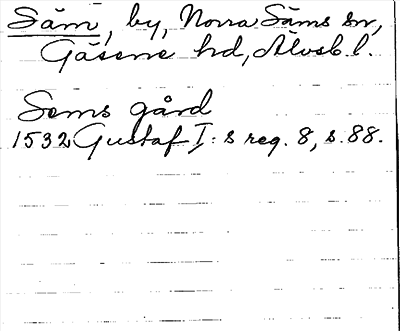 Säm, by, Norra Säms sn,
Gäsene hd, Älvsb. l.
Sems gård
1532 Gustaf I:s reg. 8, s. 88.